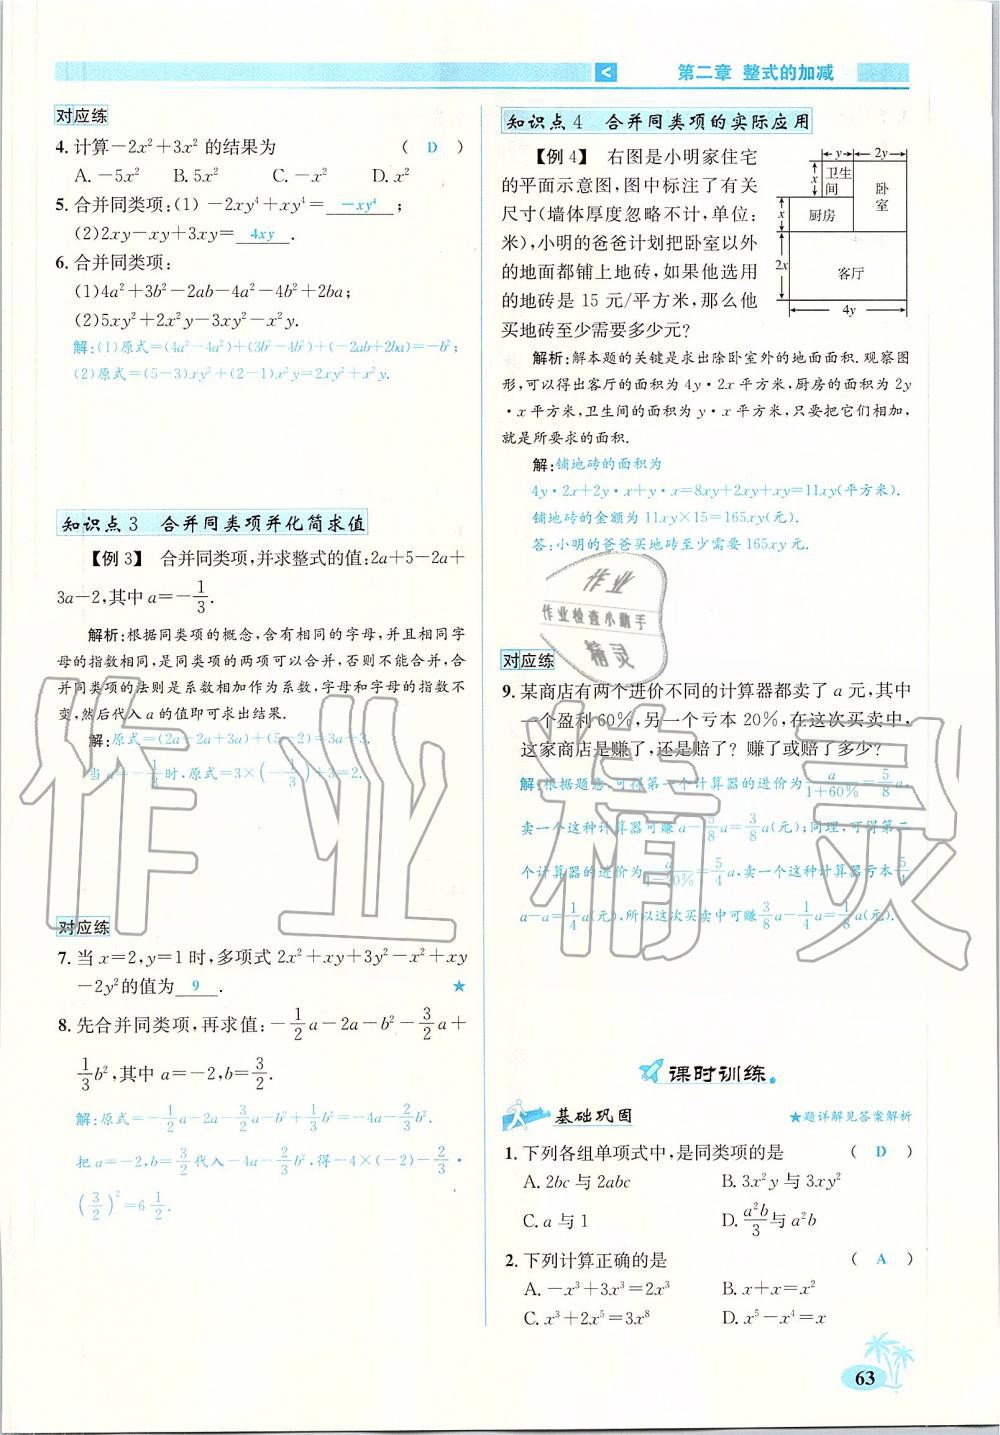 第二章 整式的加减
对应练
4. 计算－2x²＋3x² 的结果为 （ D ）
A. －5x² B. 5x² C. －x² D. x²
5. 合并同类项：(1) －2xy⁴＋xy⁴＝ －xy⁴ ；
(2)2xy－xy＋3xy＝ 4xy .
6. 合并同类项：
(1)4a²＋3b²－2ab－4a²－4b²＋2ba；
(2)5xy²＋2x²y－3xy²－x²y.
解：(1)原式＝(4a²－4a²)＋(3b²－4b²)＋(－2ab＋2ba)＝－b²；
(2)原式＝(5－3)xy²＋(2－1)x²y＝2xy²＋x²y.
知识点3 合并同类项并化简求值
【例3】 合并同类项,并求整式的值：2a＋5－2a＋
3a－2,其中 a＝－1/3.
解析：根据同类项的概念,含有相同的字母,并且相同字
母的指数相同,是同类项的两项可以合并,否则不能合并,合
并同类项的法则是系数相加作为系数,字母和字母的指数不
变,然后代入 a 的值即可求出结果.
解：原式＝(2a－2a＋3a)＋(5－2)＝3a＋3.
当 a＝－1/3 时,原式＝3×(－1/3)＋3＝2.
对应练
7. 当 x＝2,y＝1 时,多项式 2x²＋xy＋3y²－x²＋xy
－2y²的值为 9 . ★
8. 先合并同类项,再求值：－1/2a－2a－b²－3/2a＋
1/3b²,其中 a＝－2,b＝3/2.
解：原式＝－1/2a－2a－3/2a－b²＋1/3b²＝－4a－2/3b².
把 a＝－2,b＝3/2代入－4a－2/3b²,得－4×(－2)－2/3·
(3/2)²＝6 1/2.
知识点4 合并同类项的实际应用
【例4】 右图是小明家住宅
的平面示意图,图中标注了有关
尺寸(墙体厚度忽略不计,单位：
米),小明的爸爸计划把卧室以外
的地面都铺上地砖,如果他选用
的地砖是 15 元/平方米,那么他
买地砖至少需要多少元?
y 2y
x
卫生
间
卧
室
x
厨房
2x
客厅
4y
解析：解本题的关键是求出除卧室外的地面面积.观察图
形,可以得出客厅的面积为 4y·2x 平方米,厨房的面积为 2y
·x 平方米,卫生间的面积为 y·x 平方米,只要把它们相加,
就是所要求的面积.
解：铺地砖的面积为
4y·2x＋2y·x＋y·x＝8xy＋2xy＋xy＝11xy(平方米).
铺地砖的金额为 11xy×15＝165xy(元).
答：小明的爸爸买地砖至少需要 165xy 元.
作业
作业检查小助手
精灵
对应练
9. 某商店有两个进价不同的计算器都卖了 a 元,其中
一个盈利60％,另一个亏本20％,在这次买卖中,
这家商店是赚了,还是赔了？赚了或赔了多少？
解：根据题意,可得第一个计算器的进价为a/1＋60％＝5/8a,
卖一个这种计算器可赚 a－5/8a＝3/8a(元)；同理,可得第二
个计算器的进价为a/1－20％＝5/4a,卖一个这种计算器亏本5/4
a－a＝1/4a(元),所以这次买卖中可赚3/8a－1/4a＝1/8a(元).
课时训练
基础巩固 ★题详解见答案解析
1. 下列各组单项式中,是同类项的是 （ D ）
A. 2bc 与 2abc B. 3x²y 与 3xy²
C. a 与 1 D. a²b/3与 a²b
2. 下列计算正确的是 （ A ）
A. －x³＋3x³＝2x³ B. x＋x＝x²
C. x³＋2x⁵＝3x⁸ D. x⁵－x⁴＝x
63
作业精灵